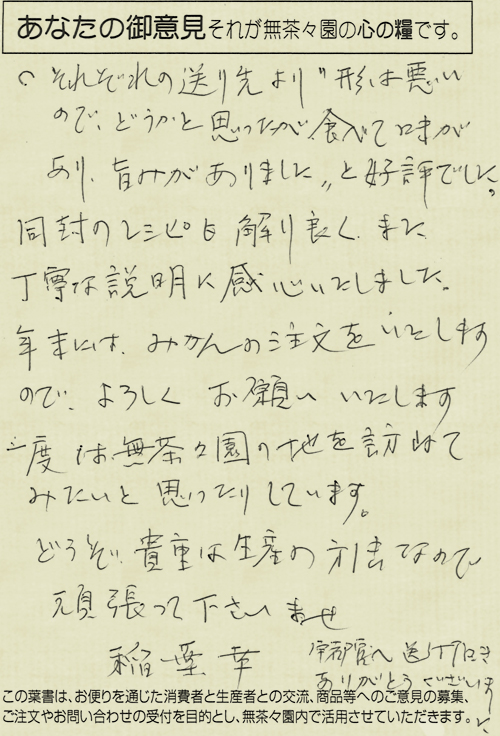 あなたの御意見それが無茶々園の心の糧です。
○ それぞれの送り先より"形は悪い
ので、どうかと思ったが、食べて味が
あり、旨みがありました〃と好評でした。
同封のレシピも解り良く、また
丁寧な説明に感心いたしました。
年末には、みかんの注文をいたします
ので、よろしくお願いいたします
一度は無茶々園の地を訪ねて
みたいと思ったりしています。
どうぞ、貴重な生産の方法なので
頑張って下さいませ
稲葉 幸
送って頂き
ありがとうございました
この葉書は、お便りを通じた消費者と生産者との交流、商品等へのご意見の募集、
ご注文やお問い合わせの受付を目的とし、無茶々園内で活用させていただきます。